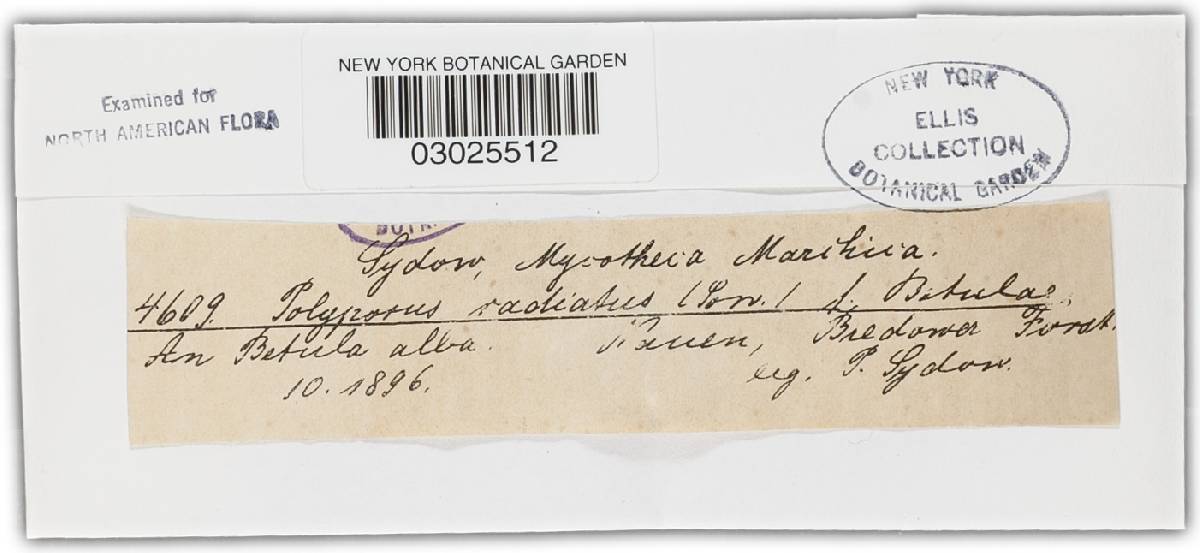 NEW YORK BOTANICAL GARDEN
03025512
Examined for
NORTH AMERICAN FLORA
NEW YORK
ELLIS
COLLECTION
BOTANICAL GARDEN
Sydow, Mycotheca Marchica.
4609. Polyporus radiatus (Sow.) f. Betulae,
An Betula alba. Nauen, Bredower Forst.
10. 1896. leg. P. Sydow.